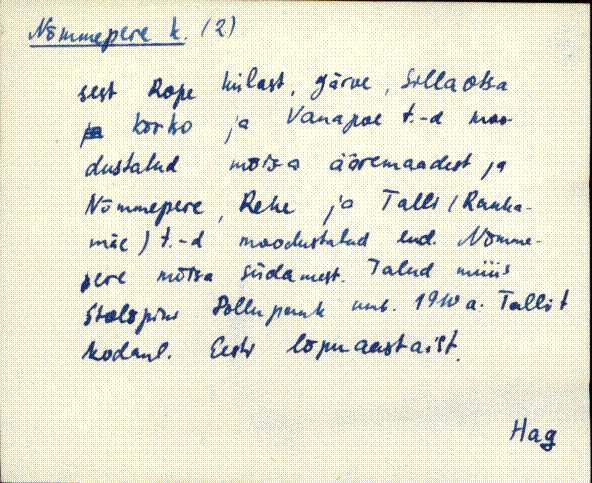 Nõmmepere k. (2)
sest Rope külast, Järve, Sillaotsa
Korko ja Vanapoe t.-d moo-
dustatud mõisa ääremaadest ja
Nõmmepere, Rehe ja Talli (Rauka-
mäe) t.-d moodustatud end. Nõmme-
pere mõisa südamest. Talud müüs
Stolõpini Põllupank umb. 1910 a. Tallit
kodanl. Eesti lõpuaastaist.
Hag